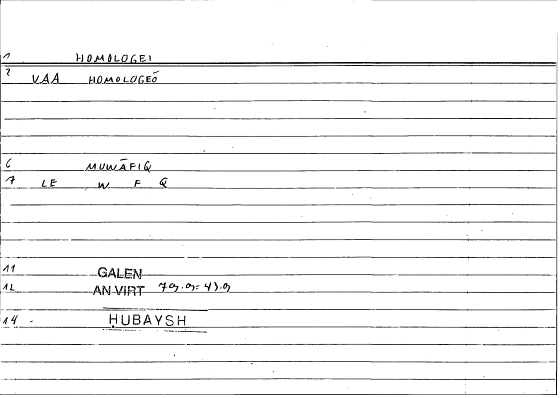 1 HOMOLOGEI
2 VAA HOMOLOGEŌ
6 MUWĀFIQ
7 LE W F Q
11 GALEN
12 AN VIRT
14 - ḤUBAYSH